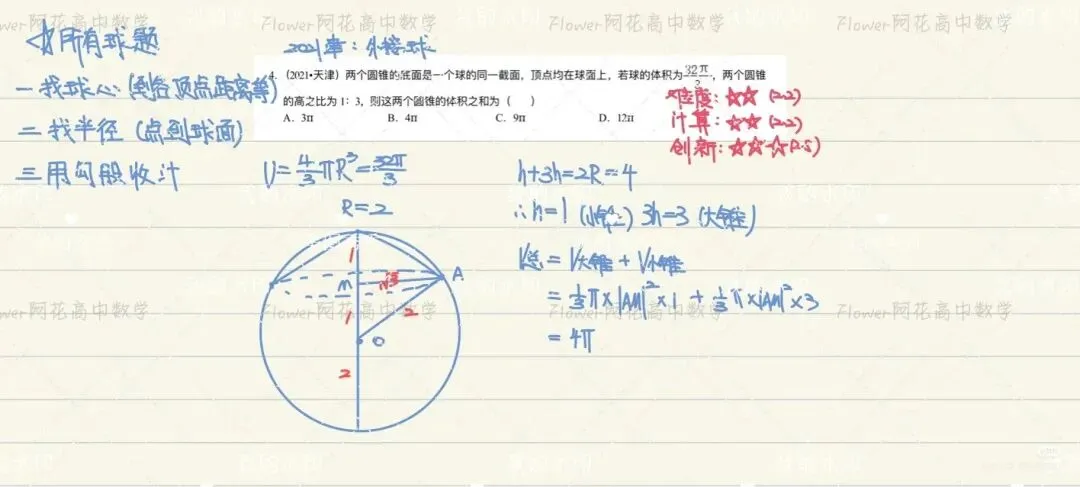 7lower阿花高中数学 7lower阿花高中数学 7lower阿花高中数学 7lower阿花高中数学
所有球题
一找球心(到各顶点距离等)
二找半径(点到球面)
三用勾股收汁
2021津:外接球
4.(2021•天津)两个圆锥的底面是一个球的同一截面,顶点均在球面上,若球的体积为32π/3,两个圆锥
的高之比为1:3,则这两个圆锥的体积之和为( )
A. 3π B. 4π C. 9π D. 12π
难度:☆☆(2.2)
计算:☆☆(2.2)
创新:☆☆☆(2.5)
V=4/3πR³=32π/3
R=2
h+3h=2R=4
∴h=1(小锥)3h=3(大锥)
V总=V大锥+V小锥
=1/3π×|AM|²×1+1/3π×|AM|²×3
=4π
1
M √3 A
1 2
O
2
7lower阿花高中数学 7lower阿花高中数学 7lower阿花高中数学 7lower阿花高中数学